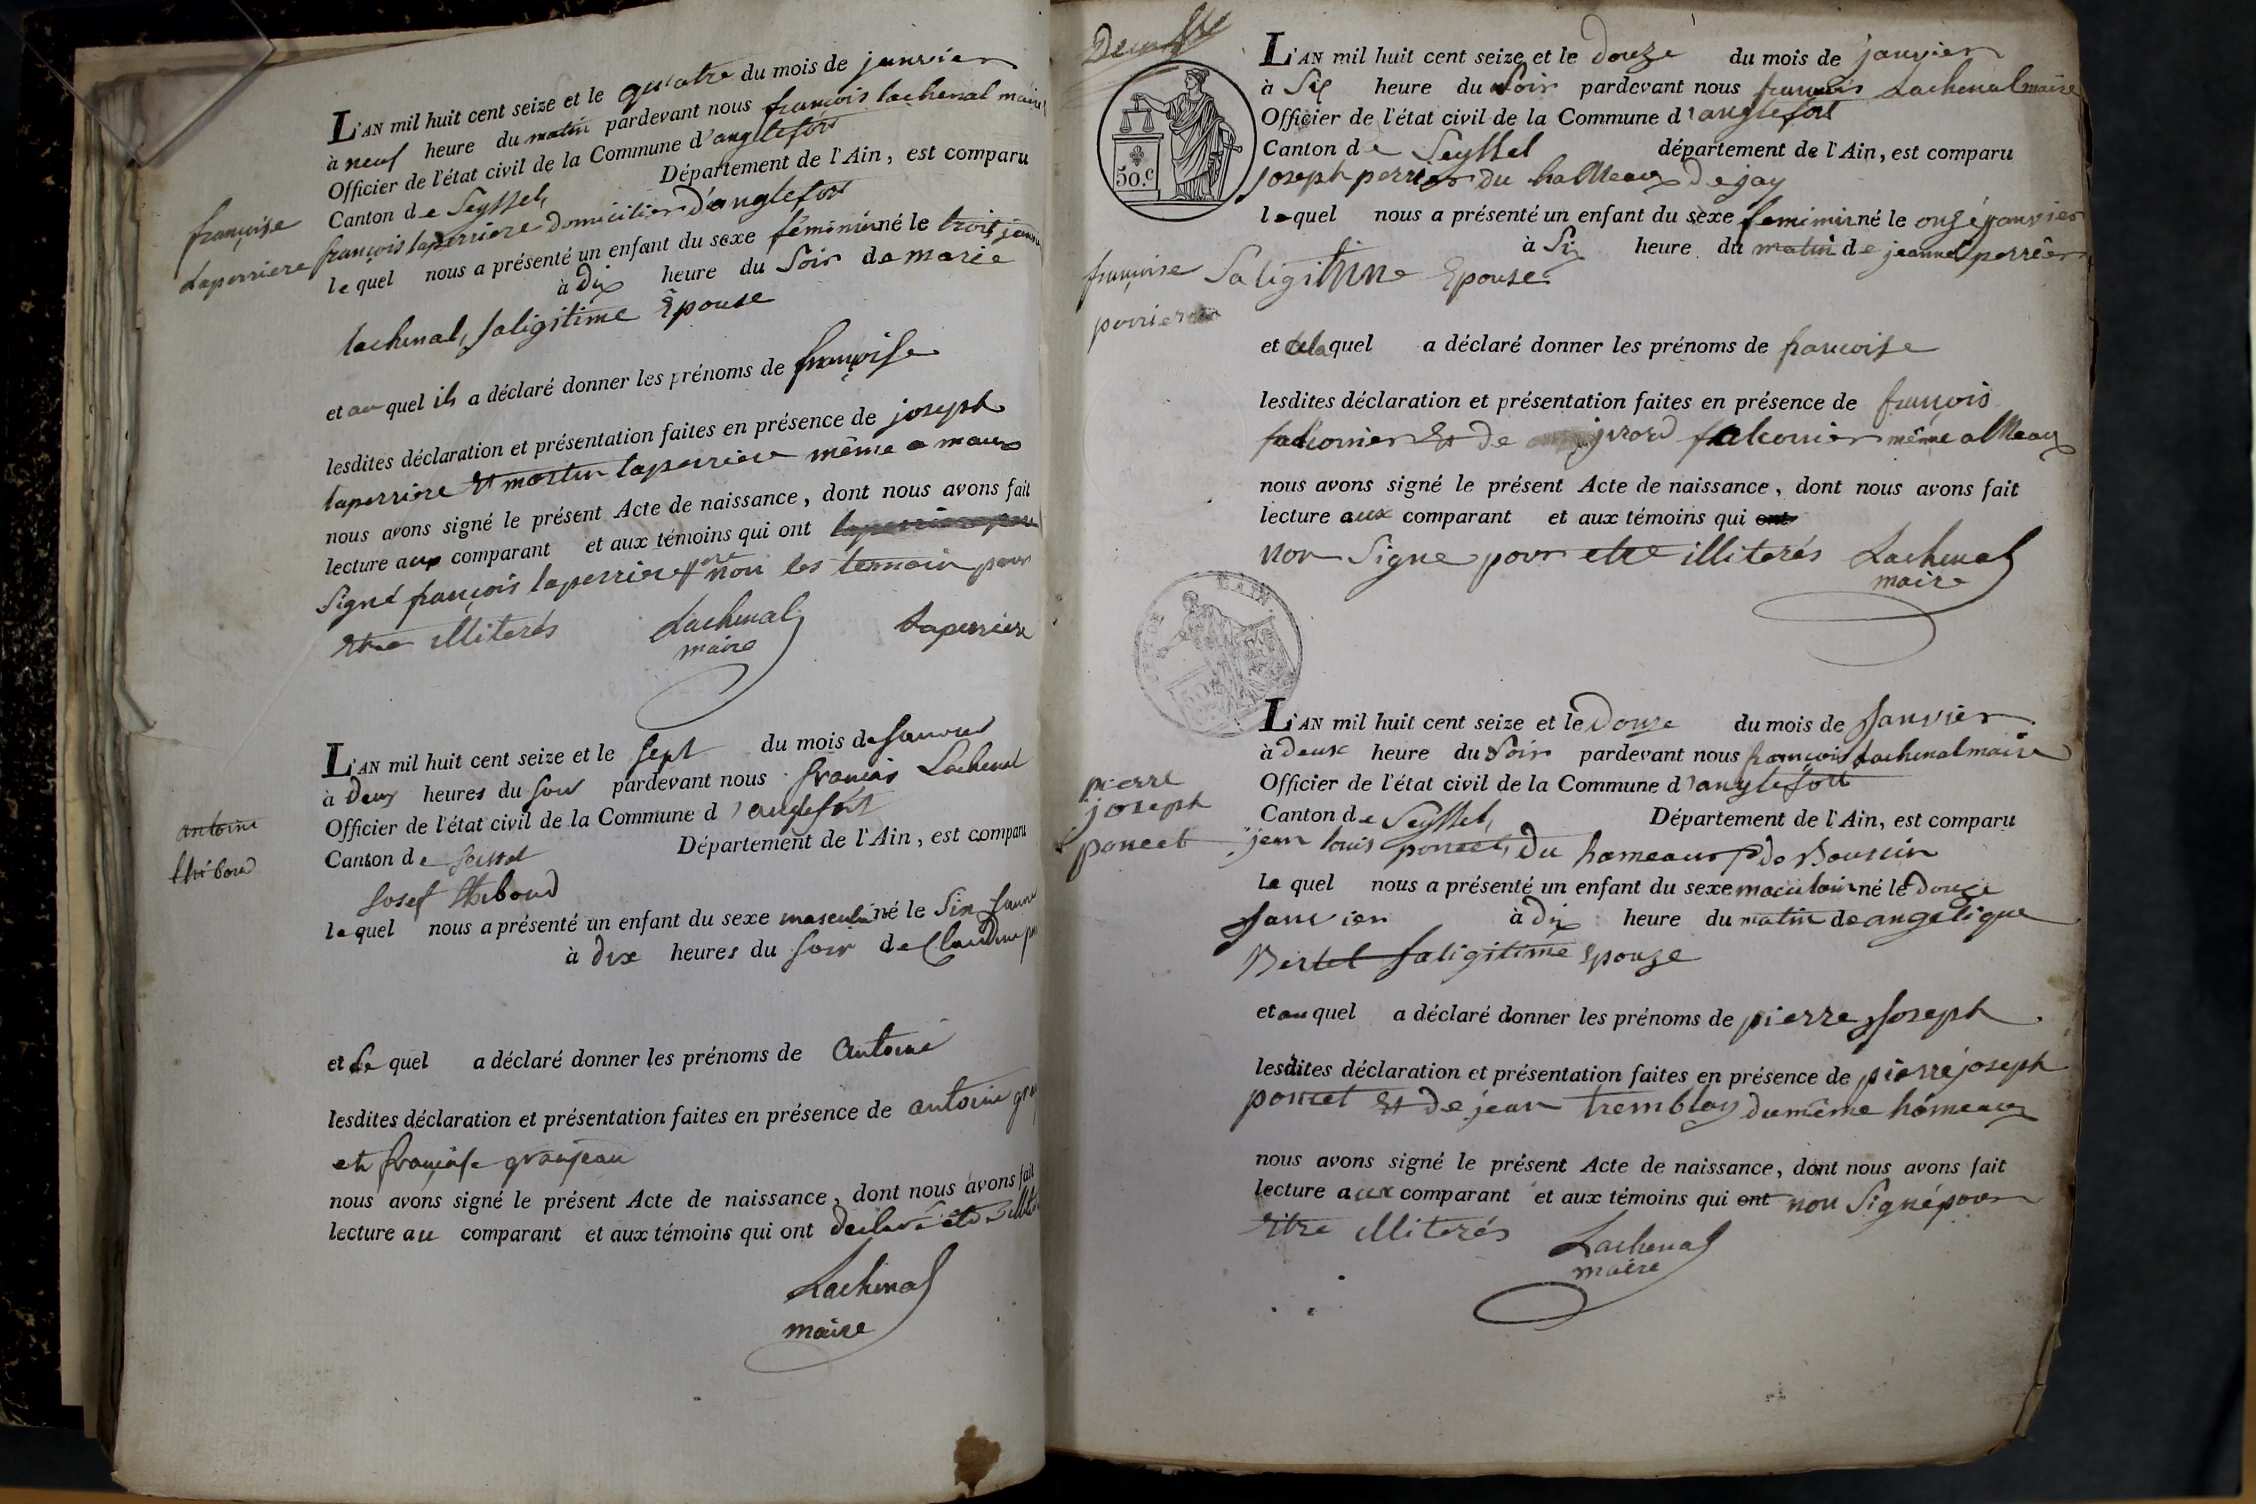 L'AN mil huit cent seize et le quatre du mois de janvier
à neuf heure du matin pardevant nous françois lachenal maire
Officier de l'état civil de la Commune d'anglefort
Canton de Seyssel, Département de l'Ain, est comparu
françois laperriere domicilier d'anglefort
lequel nous a présenté un enfant du sexe féminin né le trois janv
à dix heure du Soir de marie
lachenal, saligitime Epouse
et au quel ils a déclaré donner les prénoms de françoise
lesdites déclaration et présentation faites en présence de joseph
laperriere et martin laperriere même a maux
nous avons signé le présent Acte de naissance, dont nous avons fait
lecture aux comparant et aux témoins qui ont
Signé françois laperriere pere non les temoin pour
etre illiterés Lachenal Laperriere
maire
françoise
Laperriere
L'AN mil huit cent seize et le Sept du mois de Janvier
à deux heures du soir pardevant nous françois Lachenal
Officier de l'état civil de la Commune d'anglefort
Canton de seissel Département de l'Ain, est comparu
Josef thiboud
lequel nous a présenté un enfant du sexe masculin né le Six Janv
à dix heures du soir de Claudine
et le quel a déclaré donner les prénoms de Antoine
lesdites déclaration et présentation faites en présence de antoine
et françoise granjean
nous avons signé le présent Acte de naissance, dont nous avons fait
lecture au comparant et aux témoins qui ont declaré etre
Lachenal
maire
antoine
thiboud
50.c
L'AN mil huit cent seize et le douze du mois de janvier
à Six heure du Soir pardevant nous françois Lachenal maire
Officier de l'état civil de la Commune d'anglefort
Canton de Seyssel département de l'Ain, est comparu
joseph perrier du hameaux de jay
lequel nous a présenté un enfant du sexe feminin né le onze janvier
à Six heure du matin de jeanne perrier
Saligitime Epouse
et quel a déclaré donner les prénoms de francoise
lesdites déclaration et présentation faites en présence de françois
falconier et de falconier même a Meaux
nous avons signé le présent Acte de naissance, dont nous avons fait
lecture aux comparant et aux témoins qui ont
non Signe pour etre illiterés Lachenal
maire
françoise
perrier
L'AN mil huit cent seize et le Douze du mois de Janvier
à deux heure du Soir pardevant nous françois Lachenal maire
Officier de l'état civil de la Commune d'anglefort
Canton de Seyssel, Département de l'Ain, est comparu
jean louis poncet, du hameaux de
le quel nous a présenté un enfant du sexe maculain né le Douze
Janvier à dix heure du matin de angélique
Bertet saligitime Epouze
et au quel a déclaré donner les prénoms de pierre Joseph
lesdites déclaration et présentation faites en présence de pierre joseph
poncet et de jean tremblay du même hámeaux
nous avons signé le présent Acte de naissance, dont nous avons fait
lecture aux comparant et aux témoins qui ont non Signé pour
etre illiterés Lachenal
maire
pierre
joseph
poncet